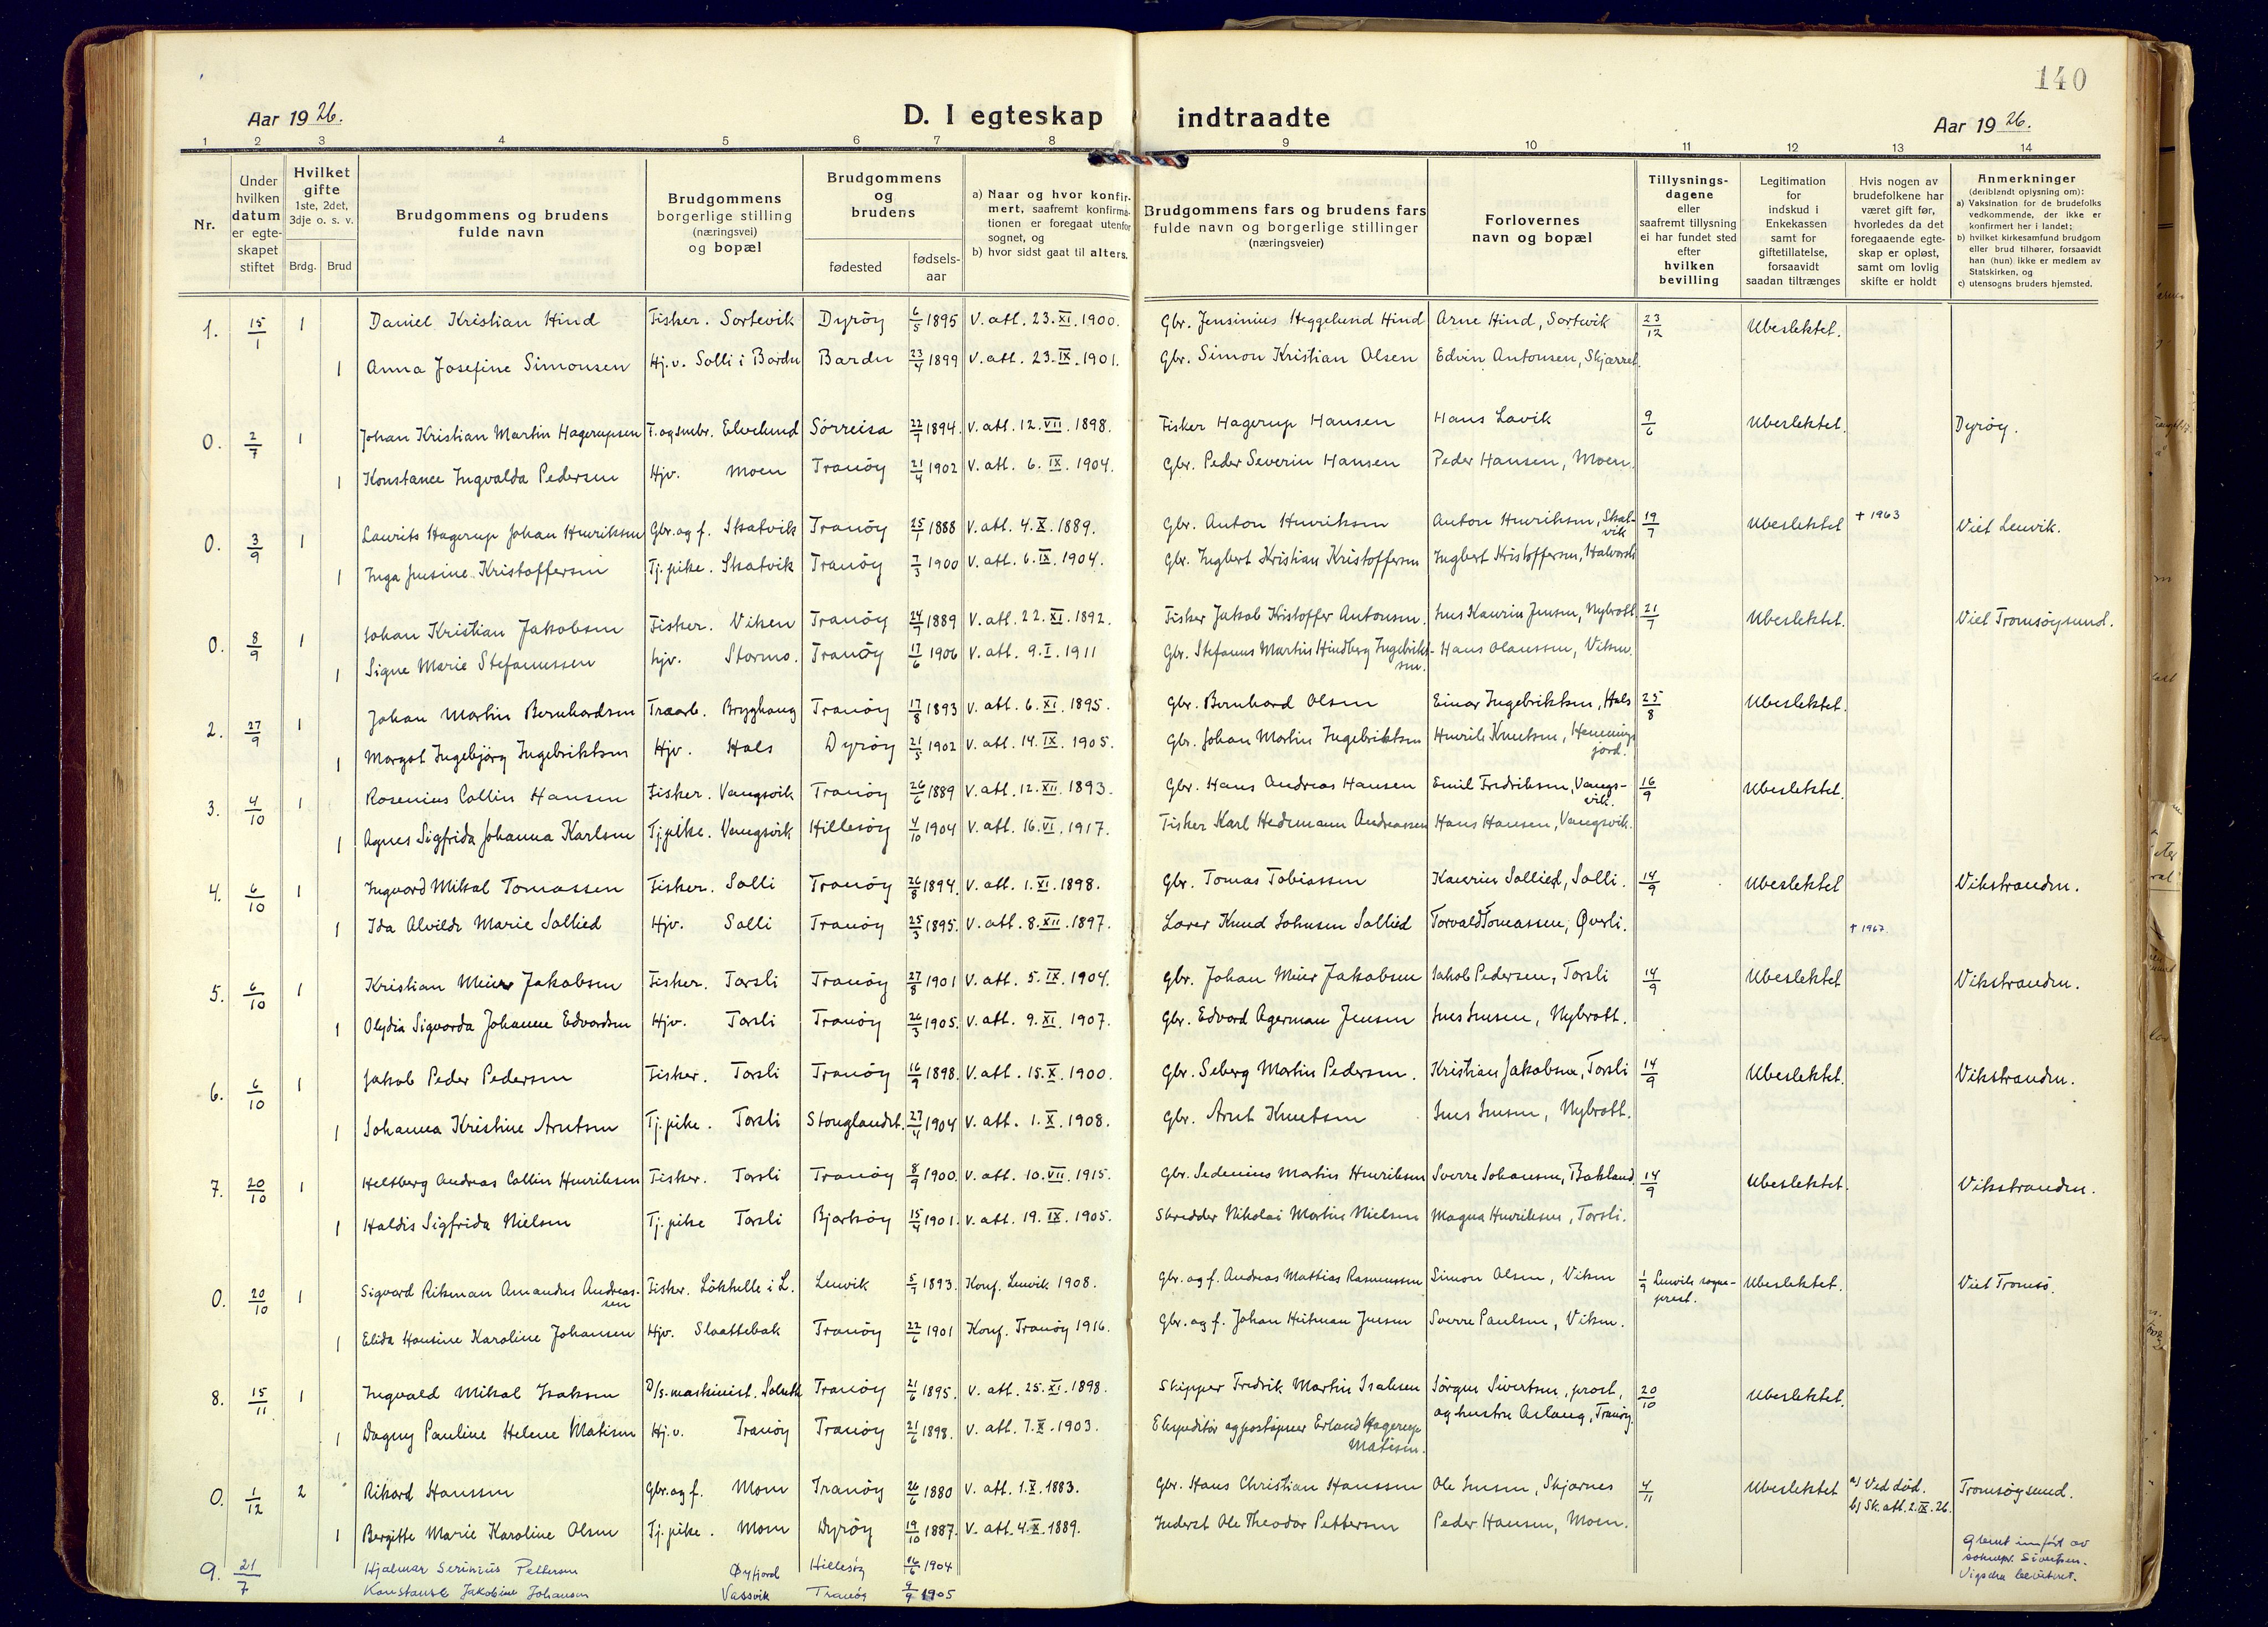 140
Aar 1926.
D. I egteskap indtraadte
Aar 1926.
1 2 3 4 5 6 7 8 9 10 11 12 13 14
Nr.
Under hvilken datum er egteskapet stiftet
Hvilket gifte 1ste, 2det, 3dje o. s. v.
Brdg. Brud
Brudgommens og brudens fulde navn
Brudgommens borgerlige stilling (næringsvei) og bopæl
Brudgommens og brudens
fødested
fødsels-aar
a) Naar og hvor konfirmert, saafremt konfirmationen er foregaat utenfor sognet, og
b) hvor sidst gaat til alters.
Brudgommens fars og brudens fars fulde navn og borgerlige stillinger (næringsveier)
Forlovernes navn og bopæl
Tillysningsdagene eller saafremt tillysning ei har fundet sted efter hvilken bevilling
Legitimation for indskud i Enkekassen samt for giftetillatelse, forsaavidt saadan tiltrænges
Hvis nogen av brudefolkene har været gift før, hvorledes da det foregaaende egteskap er opløst, samt om lovlig skifte er holdt
Anmerkninger (deriblandt oplysning om):
a) Vaksination for de brudefolks vedkommende, der ikke er konfirmert her i landet;
b) hvilket kirkesamfund brudgom eller brud tilhører, forsaavidt han (hun) ikke er medlem av Statskirken, og
c) utensogns bruders hjemsted.
1. 15/1 1 Daniel Kristian Hind Fisker. Sortevik Dyröy 6/5 1895 V. att. 23. XI. 1900. Gbr. Jensinius Heggelund Hind Arne Hind, Sortevik 23/12 Ubeslektet.
1 Anna Josefine Simonsen Hj.v. Solli i Bardu Bardu 23/4 1899 V. att. 23. IX. 1901. Gbr. Simon Kristian Olsen Edvin Antonsen, Skjærret.
0. 2/7 1 Johan Kristian Martin Hagerupsen F. og smbr. Elvelund Sörreisa 22/7 1894. V. att. 12. VII. 1898. Fisker Hagerup Hansen Hans Lavik 9/6 Ubeslektet. Dyröy.
1 Konstance Ingvalda Pedersen Hjv. Moen Tranöy 21/4 1902 V. att. 6. IX. 1904. Gbr. Peder Severin Hansen Peder Hansen, Moen.
0. 3/9 1 Laurits Hagerup Johan Henriksen Gbr. og f. Skatvik Tranöy 25/7 1888 V. att. 4. X. 1889. Gbr. Anton Henriksen Anton Henriksen, Skatvik 19/7 Ubeslektet + 1963 Viet Lenvik.
1 Inga Jensine Kristoffersen Tj. pike. Skatvik Tranöy 7/3 1900 V. att. 6. IX. 1904. Gbr. Ingbert Kristian Kristoffersen Ingbert Kristoffersen,
0. 8/9 1 Johan Kristian Jakobsen Fisker. Viken Tranöy 24/7 1889 V. att. 22. XI. 1892. Fisker Jakob Kristoffer Antonsen. Jens Kaurin Jensen, Nybrott 21/7 Ubeslektet. Viet Tromsöysund.
1 Signe Marie Stefanussen hjv. Stormo. Tranöy 17/6 1906 V. att. 9. I. 1911 Gbr. Stefanus Martin Hindberg Ingebriktsen. Hans Olaussen, Viken.
2. 27/9 1 Johan Martin Bernhardsen Traarb. Brygghaug Tranöy 17/8 1893 V. att. 6. XI. 1895. Gbr. Bernhard Olsen Einar Ingebriktsen, Hals 25/8 Ubeslektet.
1 Margot Ingebjörg Ingebriktsen Hjv. Hals Dyröy 21/5 1902 V. att. 14. IX. 1905. Gbr. Johan Martin Ingebriktsen Henrik Knutsen, Hemmingsjord.
3. 4/10 1 Rosenius Collin Hansen Fisker. Vangsvik Tranöy 26/6 1889 V. att. 12. XII. 1893. Gbr. Hans Andreas Hansen Emil Fredriksen, Vangsvik. 16/9 Ubeslektet.
1 Agnes Sigfrida Johanna Karlsen Tj.pike. Vangsvik Hillesöy 4/10 1904 V. att. 16. VI. 1917. Fisker Karl Hedemann Andreassen Hans Hansen, Vangsvik.
4. 6/10 1 Ingvard Mikal Tomassen Fisker. Solli Tranöy 26/8 1894. V. att. 1. XI. 1898. Gbr. Tomas Tobiassen Kaurin Sollied, Solli. 14/9 Ubeslektet Vikstranden.
1 Ida Alvilde Marie Sollied Hjv. Solli Tranöy 25/3 1895. V. att. 8. XII. 1897. Lærer Knud Johnsen Sollied Torvald Tomassen, Øverli. + 1967.
5. 6/10 1 Kristian Meier Jakobsen Fisker. Torsli Tranöy 27/8 1901 V. att. 5. IX. 1904. Gbr. Johan Meier Jakobsen Jakob Pedersen, Torsli 14/9 Ubeslektet Vikstranden.
1 Olydia Sigvarda Johanne Edvardsen Hjv. Torsli Tranöy 26/3 1905. V. att. 9. XI. 1907. Gbr. Edvard Agerman Jensen Jens Jensen, Nybrott.
6. 6/10 1 Jakob Peder Pedersen Fisker. Torsli Tranöy 16/9 1898. V. att. 15. X. 1900. Gbr. Seberg Martin Pedersen. Kristian Jakobsen, Torsli 14/9 Ubeslektet. Vikstranden.
1 Johanna Kristine Arntsen Tj. pike. Torsli Stonglandet. 27/4 1904 V. att. 1. X. 1908. Gbr. Arnt Knutsen Jens Jensen, Nybrott.
7. 20/10 1 Heltberg Andreas Collin Henriksen Fisker. Torsli Tranöy 8/9 1900. V. att. 10. VII. 1915. Gbr. Sedenius Martin Henriksen Sverre Johansen, Bakland. 14/9 Ubeslektet. Vikstranden.
1 Haldis Sigfrida Nielsen Tj. pike Torsli Bjarköy 15/4 1901. V. att. 19. IX. 1905. Skredder Nikolai Martin Nielsen Magna Henriksen, Torsli.
0. 20/10 1 Sigvard Rikman Amandus Andreassen Fisker. Lökhelle i L. Lenvik 5/7 1893. Konf. Lenvik 1908. Gbr. og f. Andreas Mattias Rasmussen Simon Olsen, Viken 1/9 Lenvik sogneprest. Ubeslektet. Viet Tromsö.
1 Elida Hansine Karoline Johansen Hjv. Slaattebak Tranöy 22/6 1901 Konf. Tranöy 1916. Gbr. og f. Johan Jensen Sverre Paulsen, Viken.
8. 15/11 1 Ingvald Mikal Isaksen D/s. maskinist. Tranöy 21/6 1895. V. att. 25. XI. 1898. Skipper Fredrik Martin Isaksen Jörgen Sivertsen, prost, 20/10 Ubeslektet.
1 Dagny Pauline Helene Matisen Hj.v. Tranöy Tranöy 21/6 1898. V. att. 7. X. 1903. Ekspeditör og postaapner Erland Hagerup Matisen. og hustru Aslaug, Tranöy.
0. 1/12 2 Rikard Hanssen Gbr. og f. Moen Tranöy 26/6 1880 V. att. 1. X. 1883. Gbr. Hans Christian Hanssen Ole Jensen, Skjærnes 4/11 Ubeslektet a) Ved död. b) Sk. att. 2. IX. 26. Tromsöysund.
1 Bergitte Marie Karoline Olsen Tj. pike. Moen Dyröy 19/10 1887. V. att. 4. X. 1889. Inderst Ole Theodor Pettersen Peder Hansen, Moen.
9. 21/7 Hjalmar Serinius Pettersen Øyfjord Hillesöy 16/6 1904 Glemt innfört av sokнepr. Sivertsen. Vigsla bevitnet.
Konstanse Jakobine Johansen Vassvik Tranöy 9/9 1905